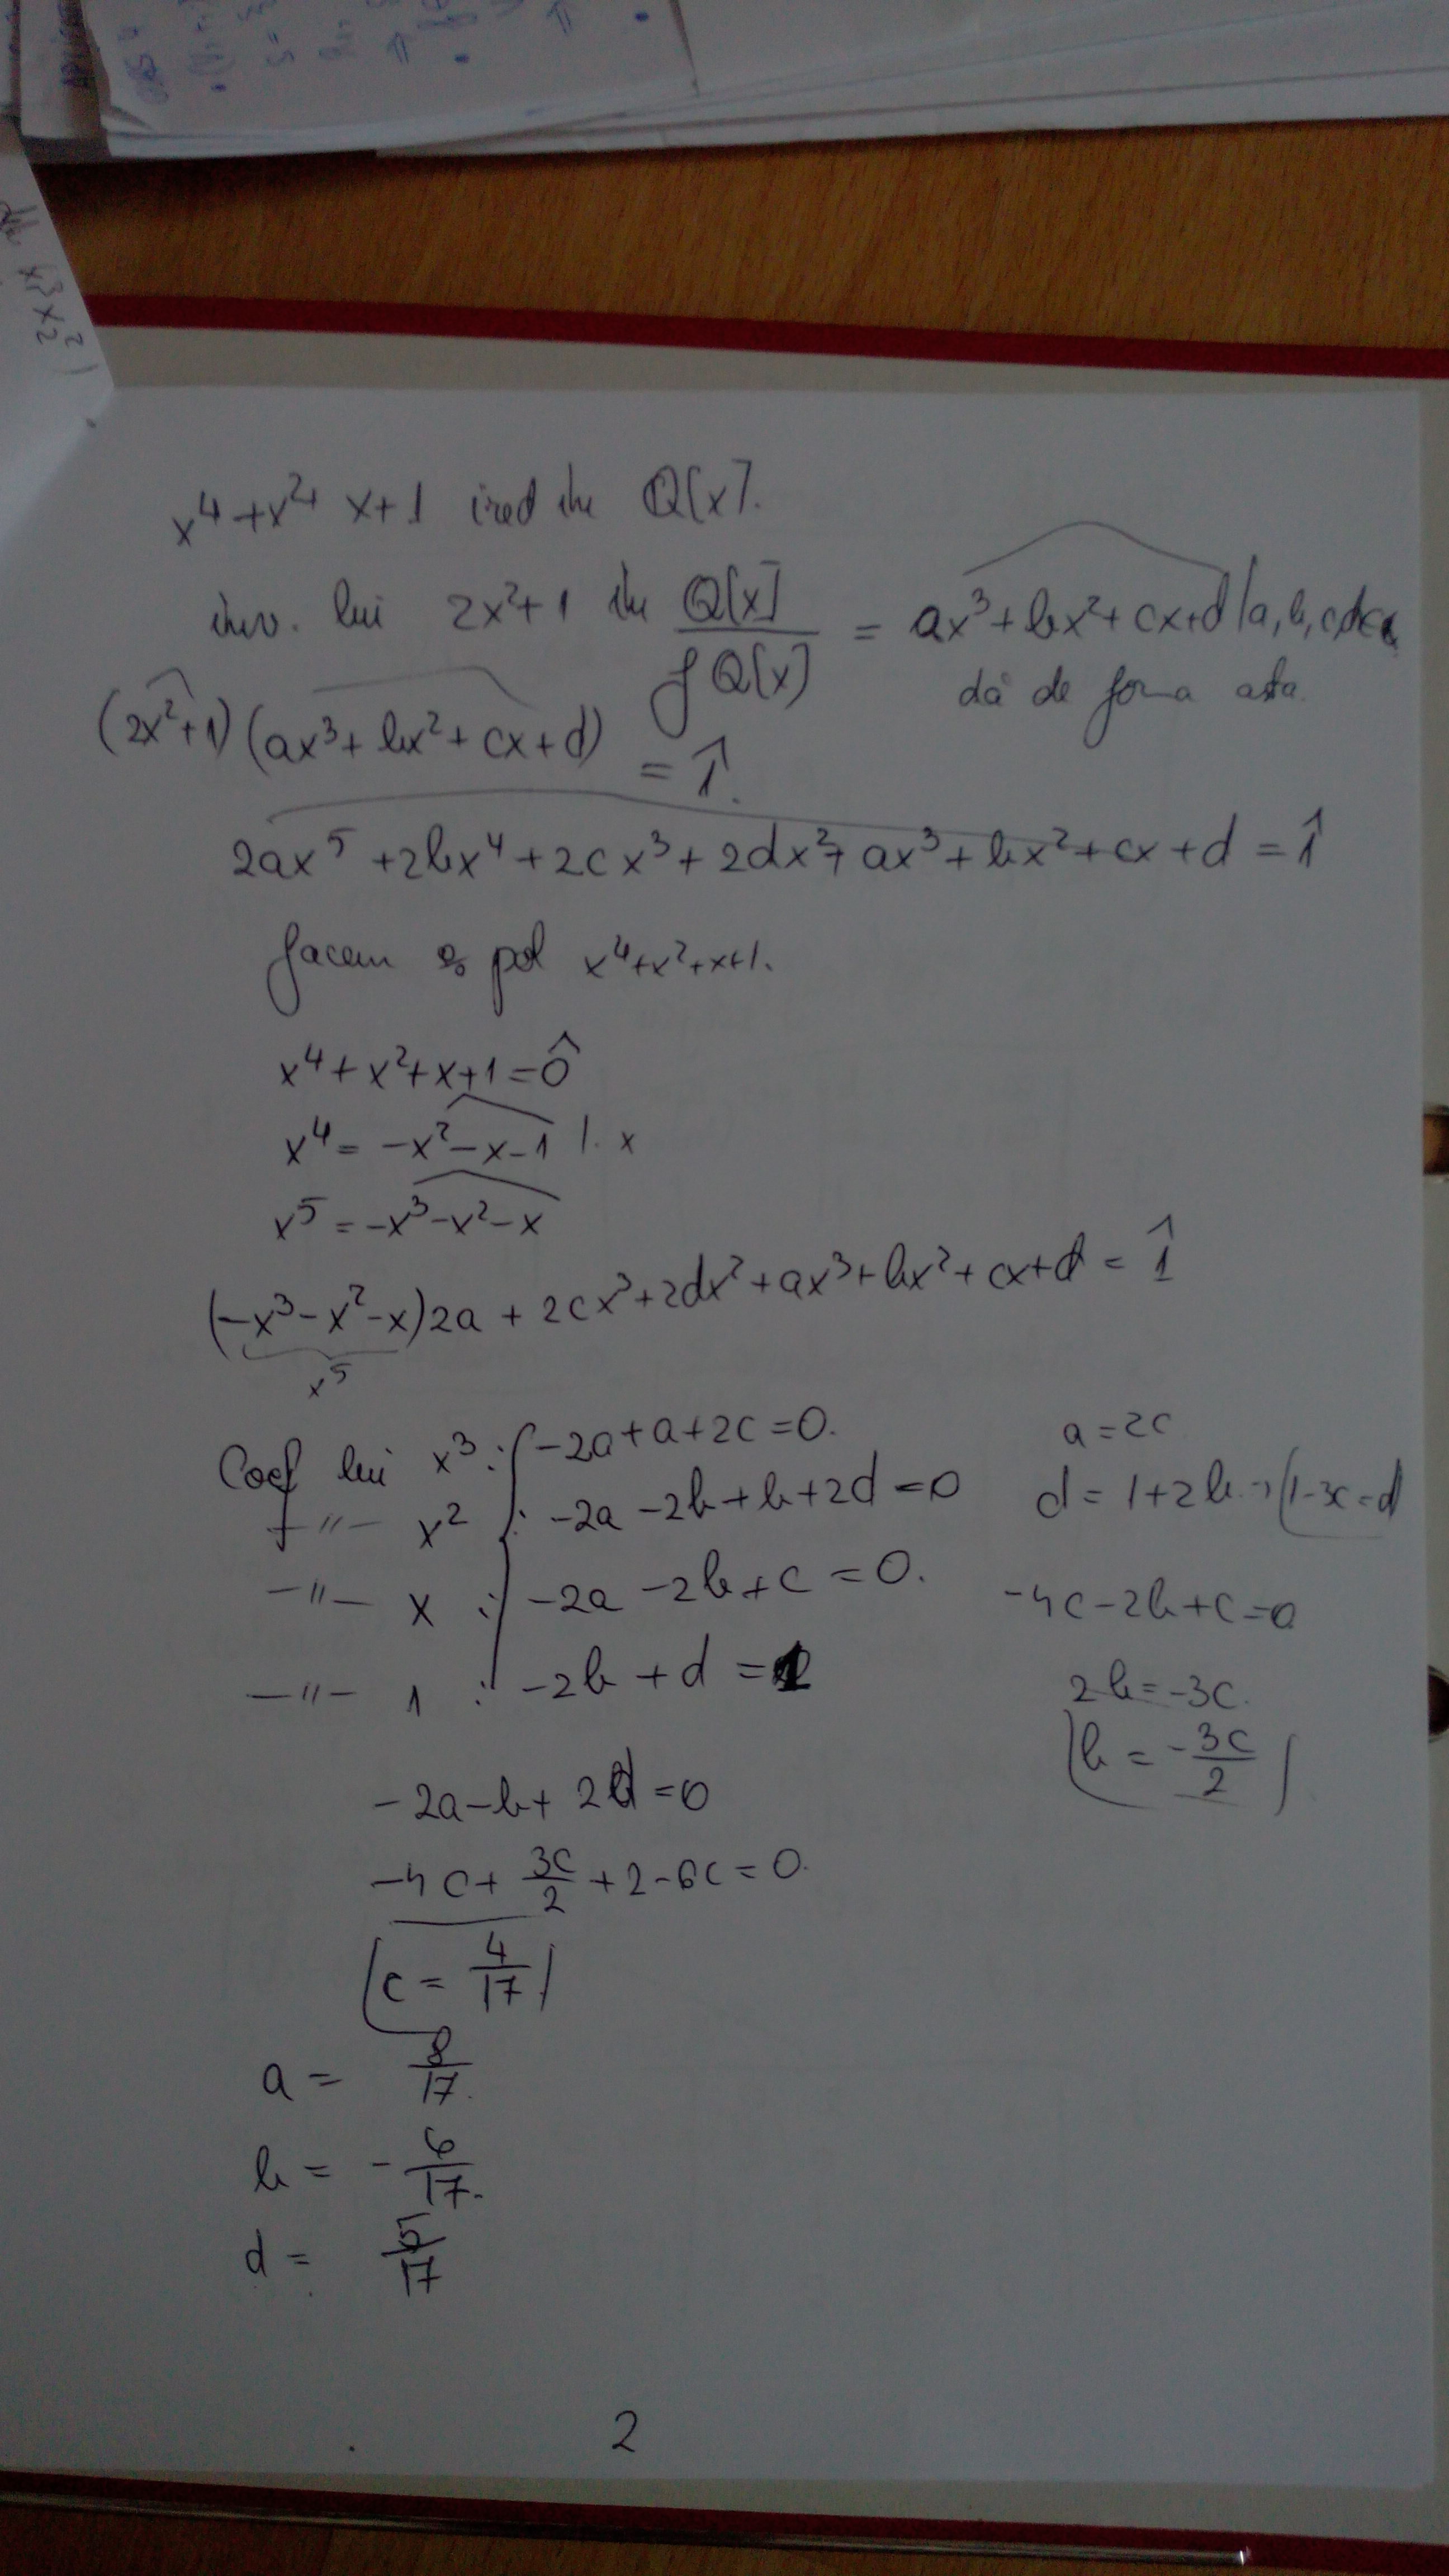 x⁴+x²+ x+1 ired în Q[x].
inv. lui 2x²+1 în Q[x] / f Q[x] = ax³+bx²+cx+d | a, b, c, d ∈
dă de forma asta.
(2x²+1)(ax³+bx²+cx+d) = 1̂.
2ax⁵ +2bx⁴+2cx³+2dx²+ax³+bx²+cx+d = 1̂
facem pol x⁴+x²+x+1.
x⁴+x²+x+1=0̂
x⁴ = -x²-x-1 |. x
x⁵ = -x³-x²-x
(-x³-x²-x)2a + 2cx³+2dx²+ax³+bx²+cx+d = 1̂
x⁵
Coef lui x³ : -2a+a+2c=0. a=2c
-〃- x² : -2a-2b+b+2d=0 d=1+2b → 1-3c=d
-〃- x : -2a-2b+c=0. -4c-2b+c=0
-〃- 1 : -2b+d=1 2b=-3c.
b = -3c/2
-2a-b+2d=0
-4c+3c/2+2-6c=0.
c = 4/17
a = 8/17.
b = -6/17.
d = 5/17
2